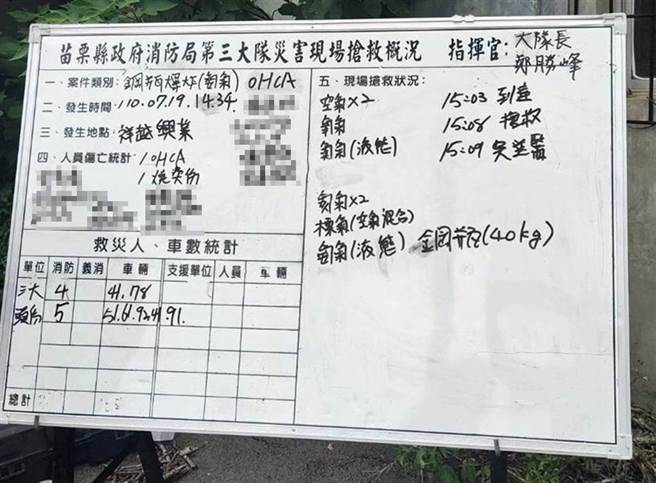 苗栗縣政府消防局第三大隊災害現場搶救概況 指揮官:大隊長
鄭勝峰
一、案件類別:鋼瓶爆炸(氨氣) OHCA
二、發生時間:110.07.19.14:34.
三、發生地點:祥越興業
四、人員傷亡統計:1 OHCA
1
救災人、車數統計
單位 消防 義消 車輛 支援單位 人員 車輛
三大 4 41.78
頭份 5 51.61.92.41.91.
總計
五、現場搶救狀況:
空氣×2 15:03 到達
氧氣 15:08 搶救
氨氣(液態) 15:09
氨氣×2
標氣(空氣混合)
氨氣(液態) 鋼瓶(40kg)